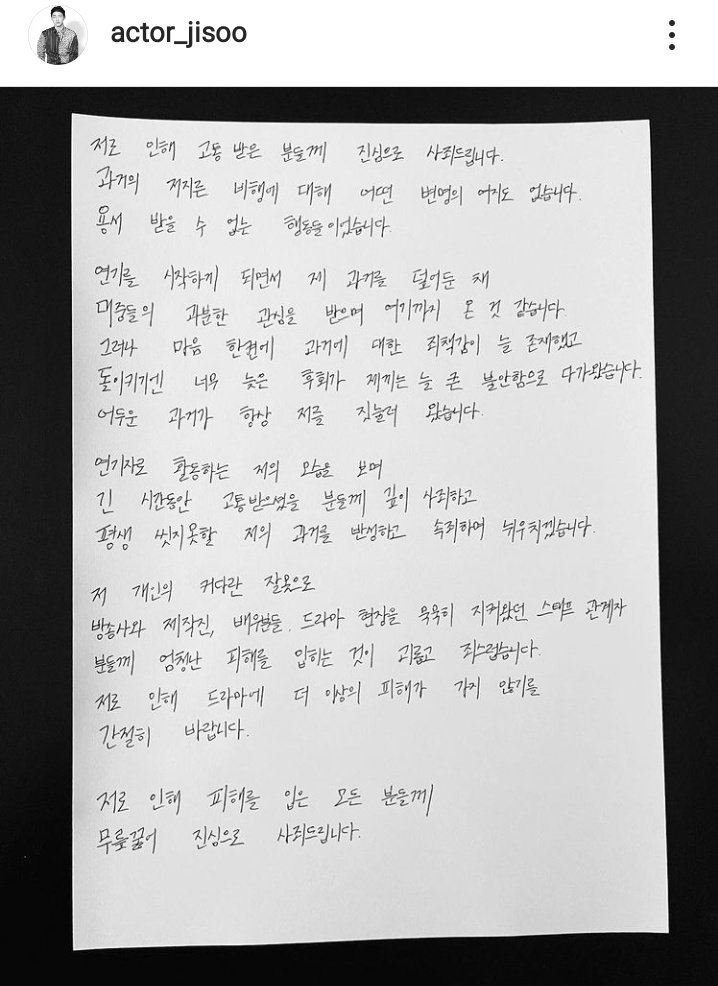 actor_jisoo
저로 인해 고통 받은 분들께 진심으로 사죄드립니다.
과거의 저지른 비행에 대해 어떤 변명의 여지도 없습니다.
용서 받을 수 없는 행동들이었습니다.
연기를 시작하게 되면서 제 과거를 덮어둔 채
대중들의 과분한 관심을 받으며 여기까지 온 것 같습니다.
그러나 마음 한켠에 과거에 대한 죄책감이 늘 존재했고
돌이키기엔 너무 늦은 후회가 제게는 늘 큰 불안함으로 다가왔습니다.
어두운 과거가 항상 저를 짓눌러 왔습니다.
연기자로 활동하는 저의 모습을 보며
긴 시간동안 고통받으셨을 분들께 깊이 사죄하고
평생 씻지못할 저의 과거를 반성하고 속죄하며 뉘우치겠습니다.
저 개인의 커다란 잘못으로
방송사와 제작진, 배우분들, 드라마 현장을 묵묵히 지켜왔던 스태프 관계자
분들께 엄청난 피해를 입히는 것이 괴롭고 죄스럽습니다.
저로 인해 드라마에 더 이상의 피해가 가지 않기를
간절히 바랍니다.
저로 인해 피해를 입은 모든 분들께
무릎꿇어 진심으로 사죄드립니다.